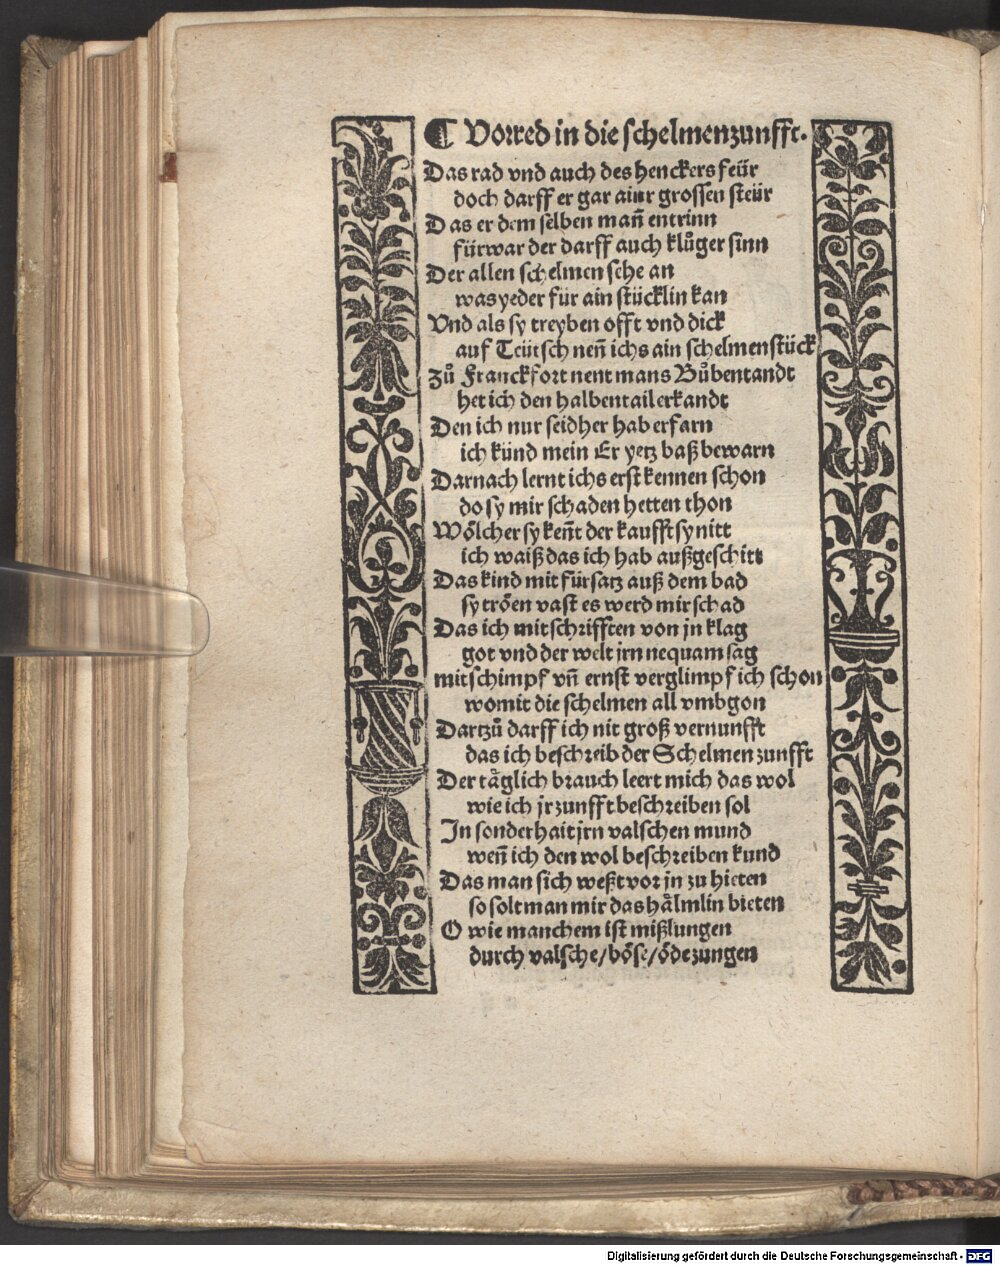 ¶ Vorred in die schelmenzunfft.
Das rad vnd auch des henckers feür
doch darff er gar ainr grossen steür
Das er dem selben mañ entrinn
fürwar der darff auch klůger sinn
Der allen schelmen sehe an
was yeder für ain stücklin kan
Vnd als sy treyben offt vnd dick
auf Teütsch neñ ichs ain schelmenstück
Zů Franckfort nent mans Bůbentandt
het ich den halben tail erkandt
Den ich nur seidher hab erfarn
ich künd mein Er yetz baß bewarn
Darnach lernt ichs erst kennen schon
do sy mir schaden hetten thon
Wölcher sy keñt der kaufft sy nitt
ich waiß das ich hab außgeschitt
Das kind mit fürsatz auß dem bad
sy tröen vast es werd mir schad
Das ich mit schrifften von jn klag
got vnd der welt jrn nequam sag
mit schimpf vñ ernst verglimpf ich schon
womit die schelmen all vmbgon
Dartzů darff ich nit groß vernunfft
das ich beschreib der Schelmen zunfft
Der täglich brauch leert mich das wol
wie ich jr zunfft beschreiben sol
In sonderhait jrn valschen mund
weñ ich den wol beschreiben kund
Das man sich weßt vor jn zu hieten
so solt man mir das hälmlin bieten
O wie manchem ist mißlungen
durch valsche/böse/öde zungen
Digitalisierung gefördert durch die Deutsche Forschungsgemeinschaft - DFG